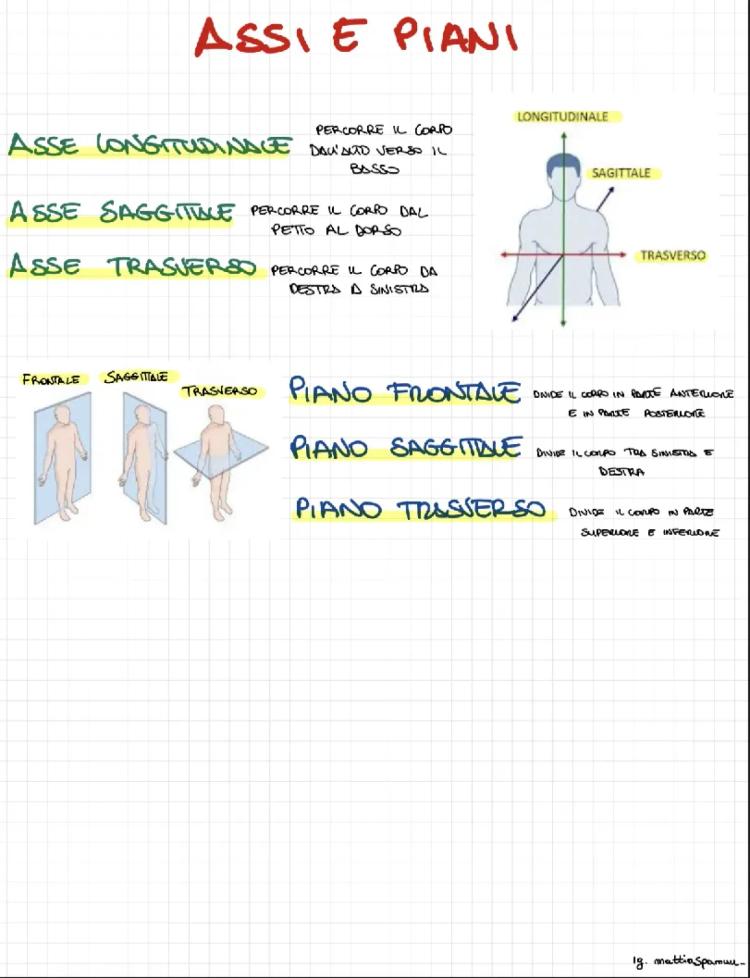 ASSI E PIANI
ASSE LONGITUDINALE
PERCORRE IL CORPO
DALL'ALTO VERSO IL
BASSO
ASSE SAGGITTALE
PERCORRE IL CORPO DAL
PETTO AL DORSO
ASSE TRASVERSO
PERCORRE IL CORPO DA
DESTRA A SINISTRA
LONGITUDINALE
SAGITTALE
TRASVERSO
FRONTALE
SAGGITTALE
TRASVERSO
PIANO FRONTALE
DIVIDE IL CORPO IN PARTE ANTERIORE
E IN PARTE POSTERIORE
PIANO SAGGITTALE
DIVIDE IL CORPO TRA SINISTRA E
DESTRA
PIANO TRASVERSO
DIVIDE IL CORPO IN PARTE
SUPERIORE E INFERIORE
Ig.